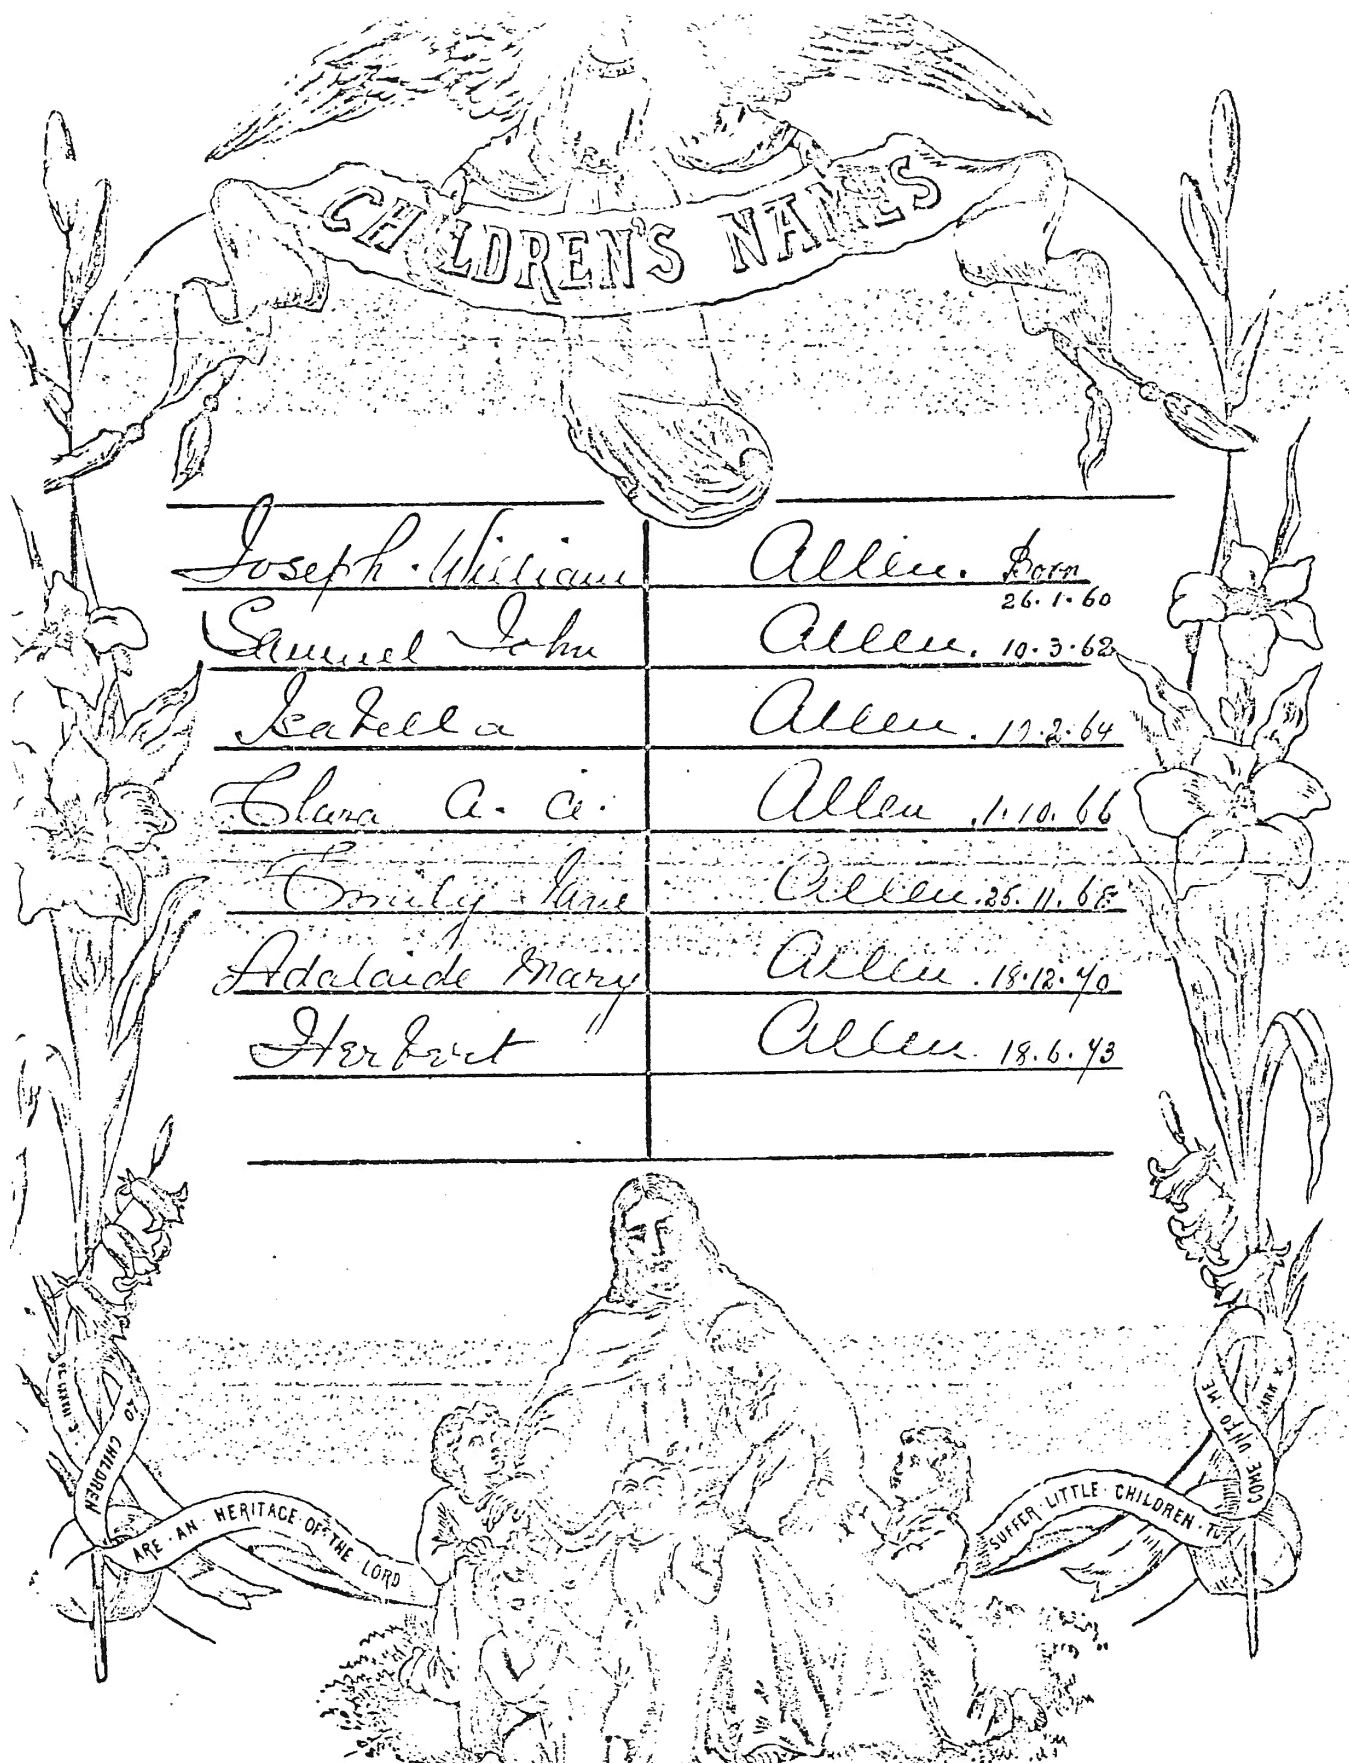 CHILDREN'S NAMES
Joseph. William Allen. Born
26.1.60
Samuel John Allen. 10.3.62
Isabella Allen. 17.2.64
Clara A. A. Allen .1.10.66
Emily Jane Allen. 25.11.68
Adalaide Mary Allen. 18.12.70
Herbert Allen. 18.6.73
LO CHILDREN
ARE · AN · HERITAGE · OF · THE LORD
SUFFER · LITTLE · CHILDREN · TO
COME UNTO · ME
MARK X